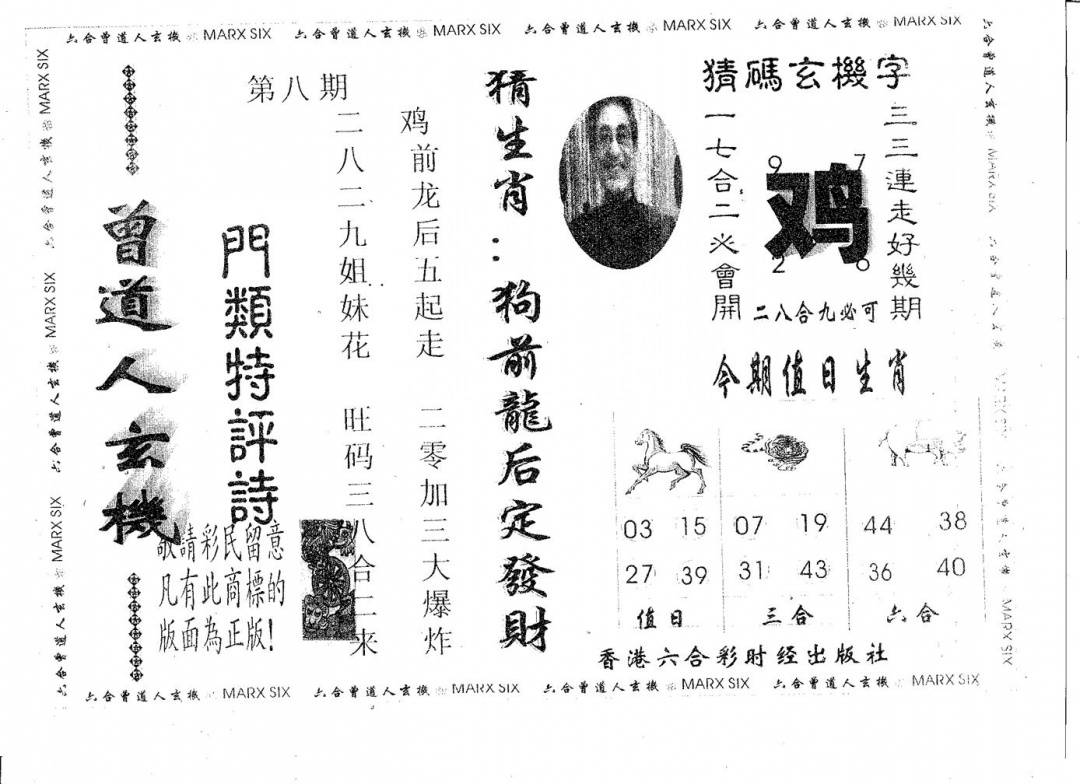 六合曾道人玄機 MARX SIX 六合曾道人玄機 MARX SIX 六合曾道人玄機 MARX SIX 六合曾道人玄機 MARX SIX
六合曾道人玄機 MARX SIX
六合曾道人玄機 MARX SIX
六合曾道人玄機 MARX SIX
六合曾道人玄機 MARX SIX
曾道人玄機
第八期
門類特評詩
敬請彩民留意
凡有此商標的
版面為正版!
鸡前龙后五起走
二零加三大爆炸
二八二九姐妹花
旺码三八合二来
猜生肖：狗前龍后定發財
猜碼玄機字
三三連走好幾期
一七合二必會開
9 7
鸡
2 0
二八合九必可
今期值日生肖
03 15 07 19 44 38
27 39 31 43 36 40
值日 三合 六合
香港六合彩时经出版社
六合曾道人玄機 MARX SIX 六合曾道人玄機 MARX SIX 六合曾道人玄機 MARX SIX 六合曾道人玄機 MARX SIX